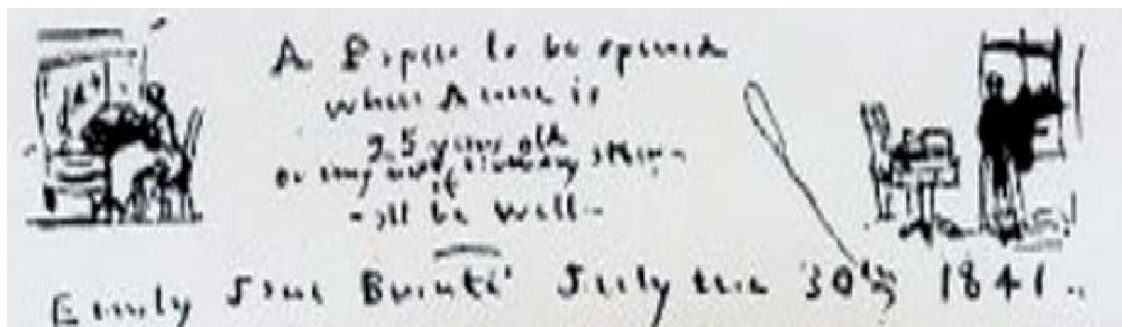 A Paper to be opened
when Anne is
25 years old
or my next birthday after -
if
- all be well -
Emily Jane Brontë July the 30th 1841..